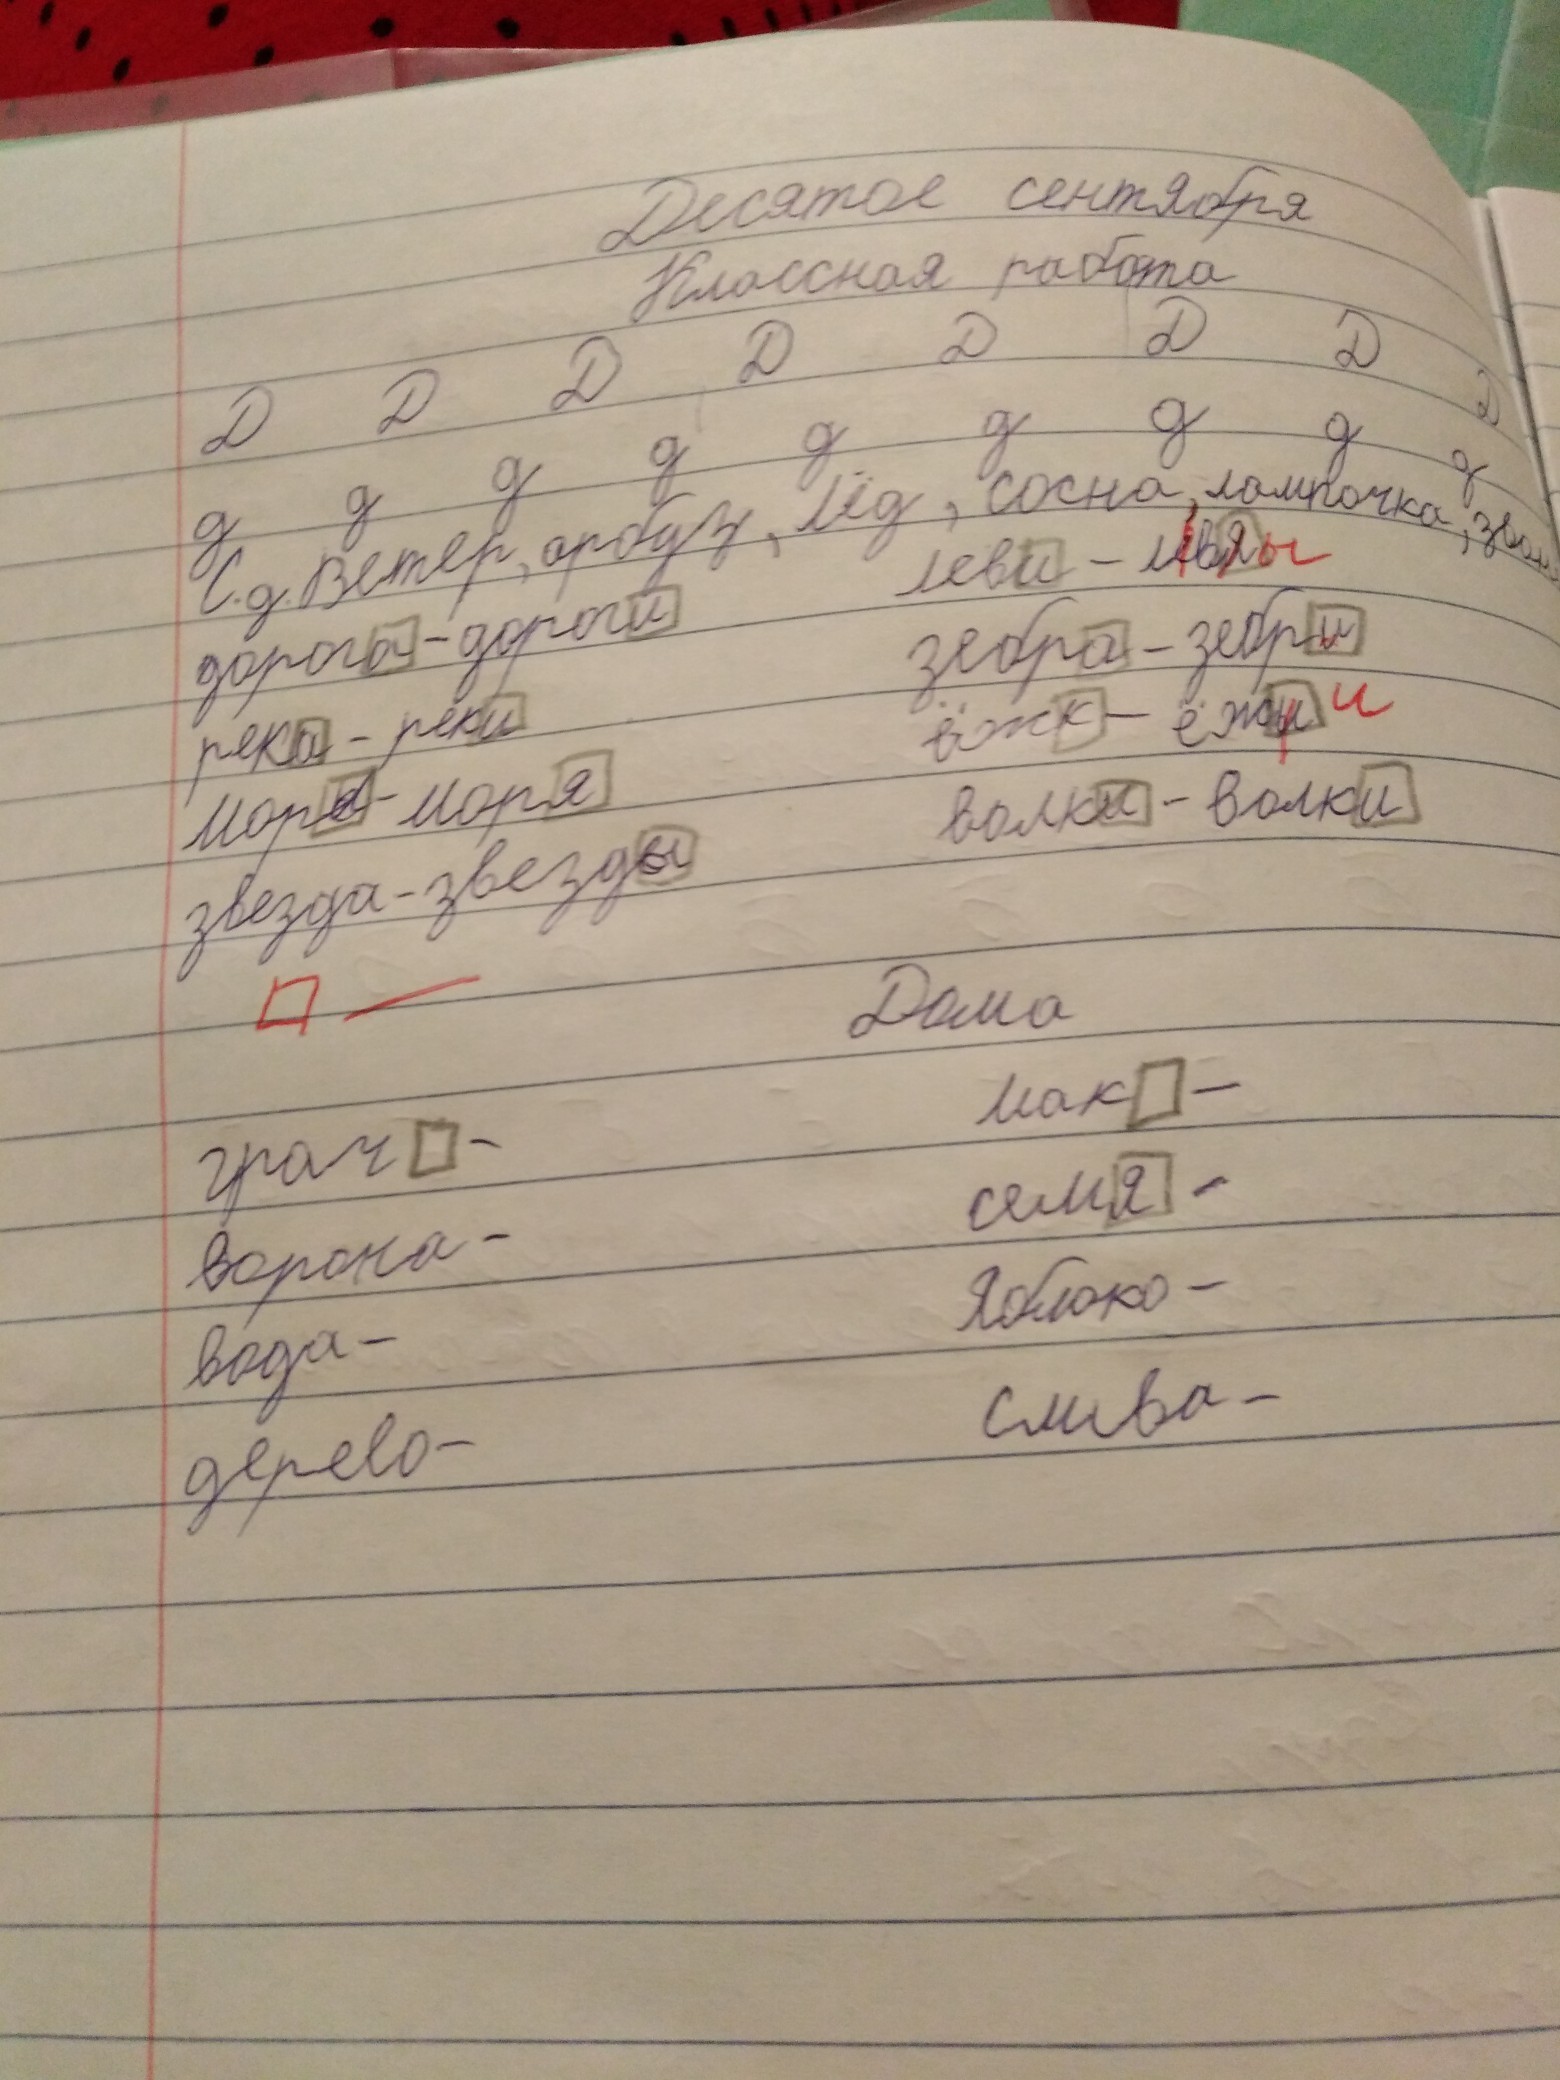 Десятое сентября
Классная работа
Д Д Д Д Д Д Д Д
д д д д д д д д д
С.д. Ветер, арбуз, лёд, сосна, лампочка,
дорога - дороги
река - реки
моря - моря
звезда - звезды
леви - левя ы
зебра - зебри
ёжк - ёжи и
волки - волки
Дома
грач -
ворона -
вода -
дерево -
мак -
семя -
яблоко -
слива -